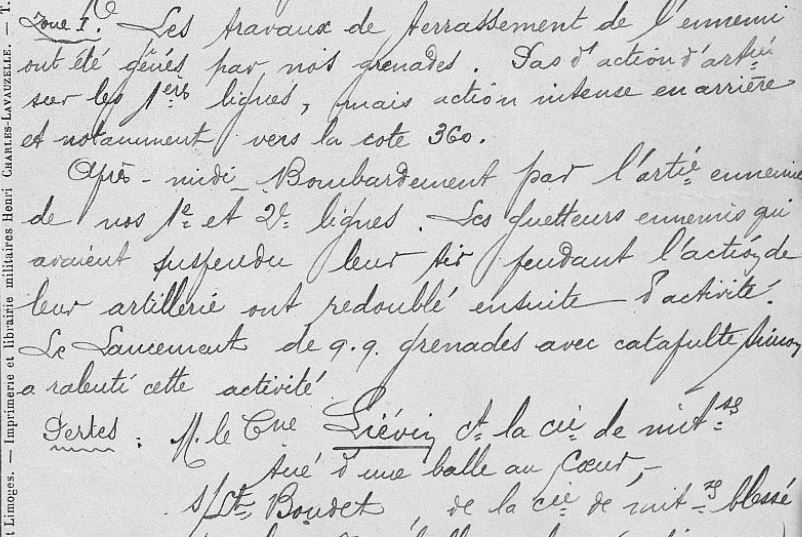 Zone I. Les travaux de terrassement de l'ennemi
ont été gênés par nos grenades. Pas d'action d'artie
sur les 1ères lignes, mais action intense en arrière
et notamment vers la cote 360.
Après-midi_ Bombardement par l'artie ennemie
de nos 1e et 2e lignes. Les guetteurs ennemis qui
avaient suspendu leur tir pendant l'action de
leur artillerie ont redoublé ensuite d'activité.
Le Lancement de q.q. grenades avec catapulte
a ralenti cette activité
Pertes : M. le Cne Liévin ct la cie de mitses
tué d'une balle au Coeur,-
s/Lt, Boudet, de la cie de mitses blessé
t Limoges. — Imprimerie et librairie militaires Henri CHARLES-LAVAUZELLE. — T.